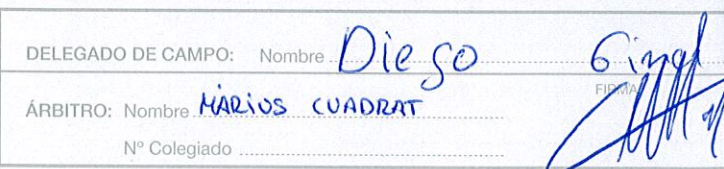 DELEGADO DE CAMPO: Nombre Diego
FIRMA
ÁRBITRO: Nombre MÀRIUS CUADRAT
Nº Colegiado